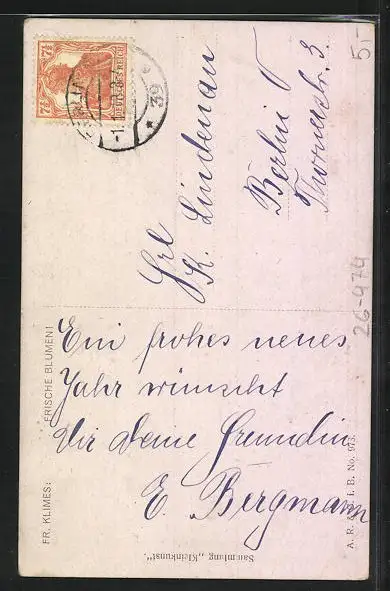 Frl
K. Lindenau
Berlin O
Thornerstr. 3.
Ein frohes neues
Jahr wünscht
Dir Deine Freundin
E. Bergmann
FR. KLIMES: FRISCHE BLUMEN!
Sammlung „Kleinkunst".
B. No. 973.
26-974
7½ 7½
DEUTSCHES REICH
BERLIN
* 39 *
5-